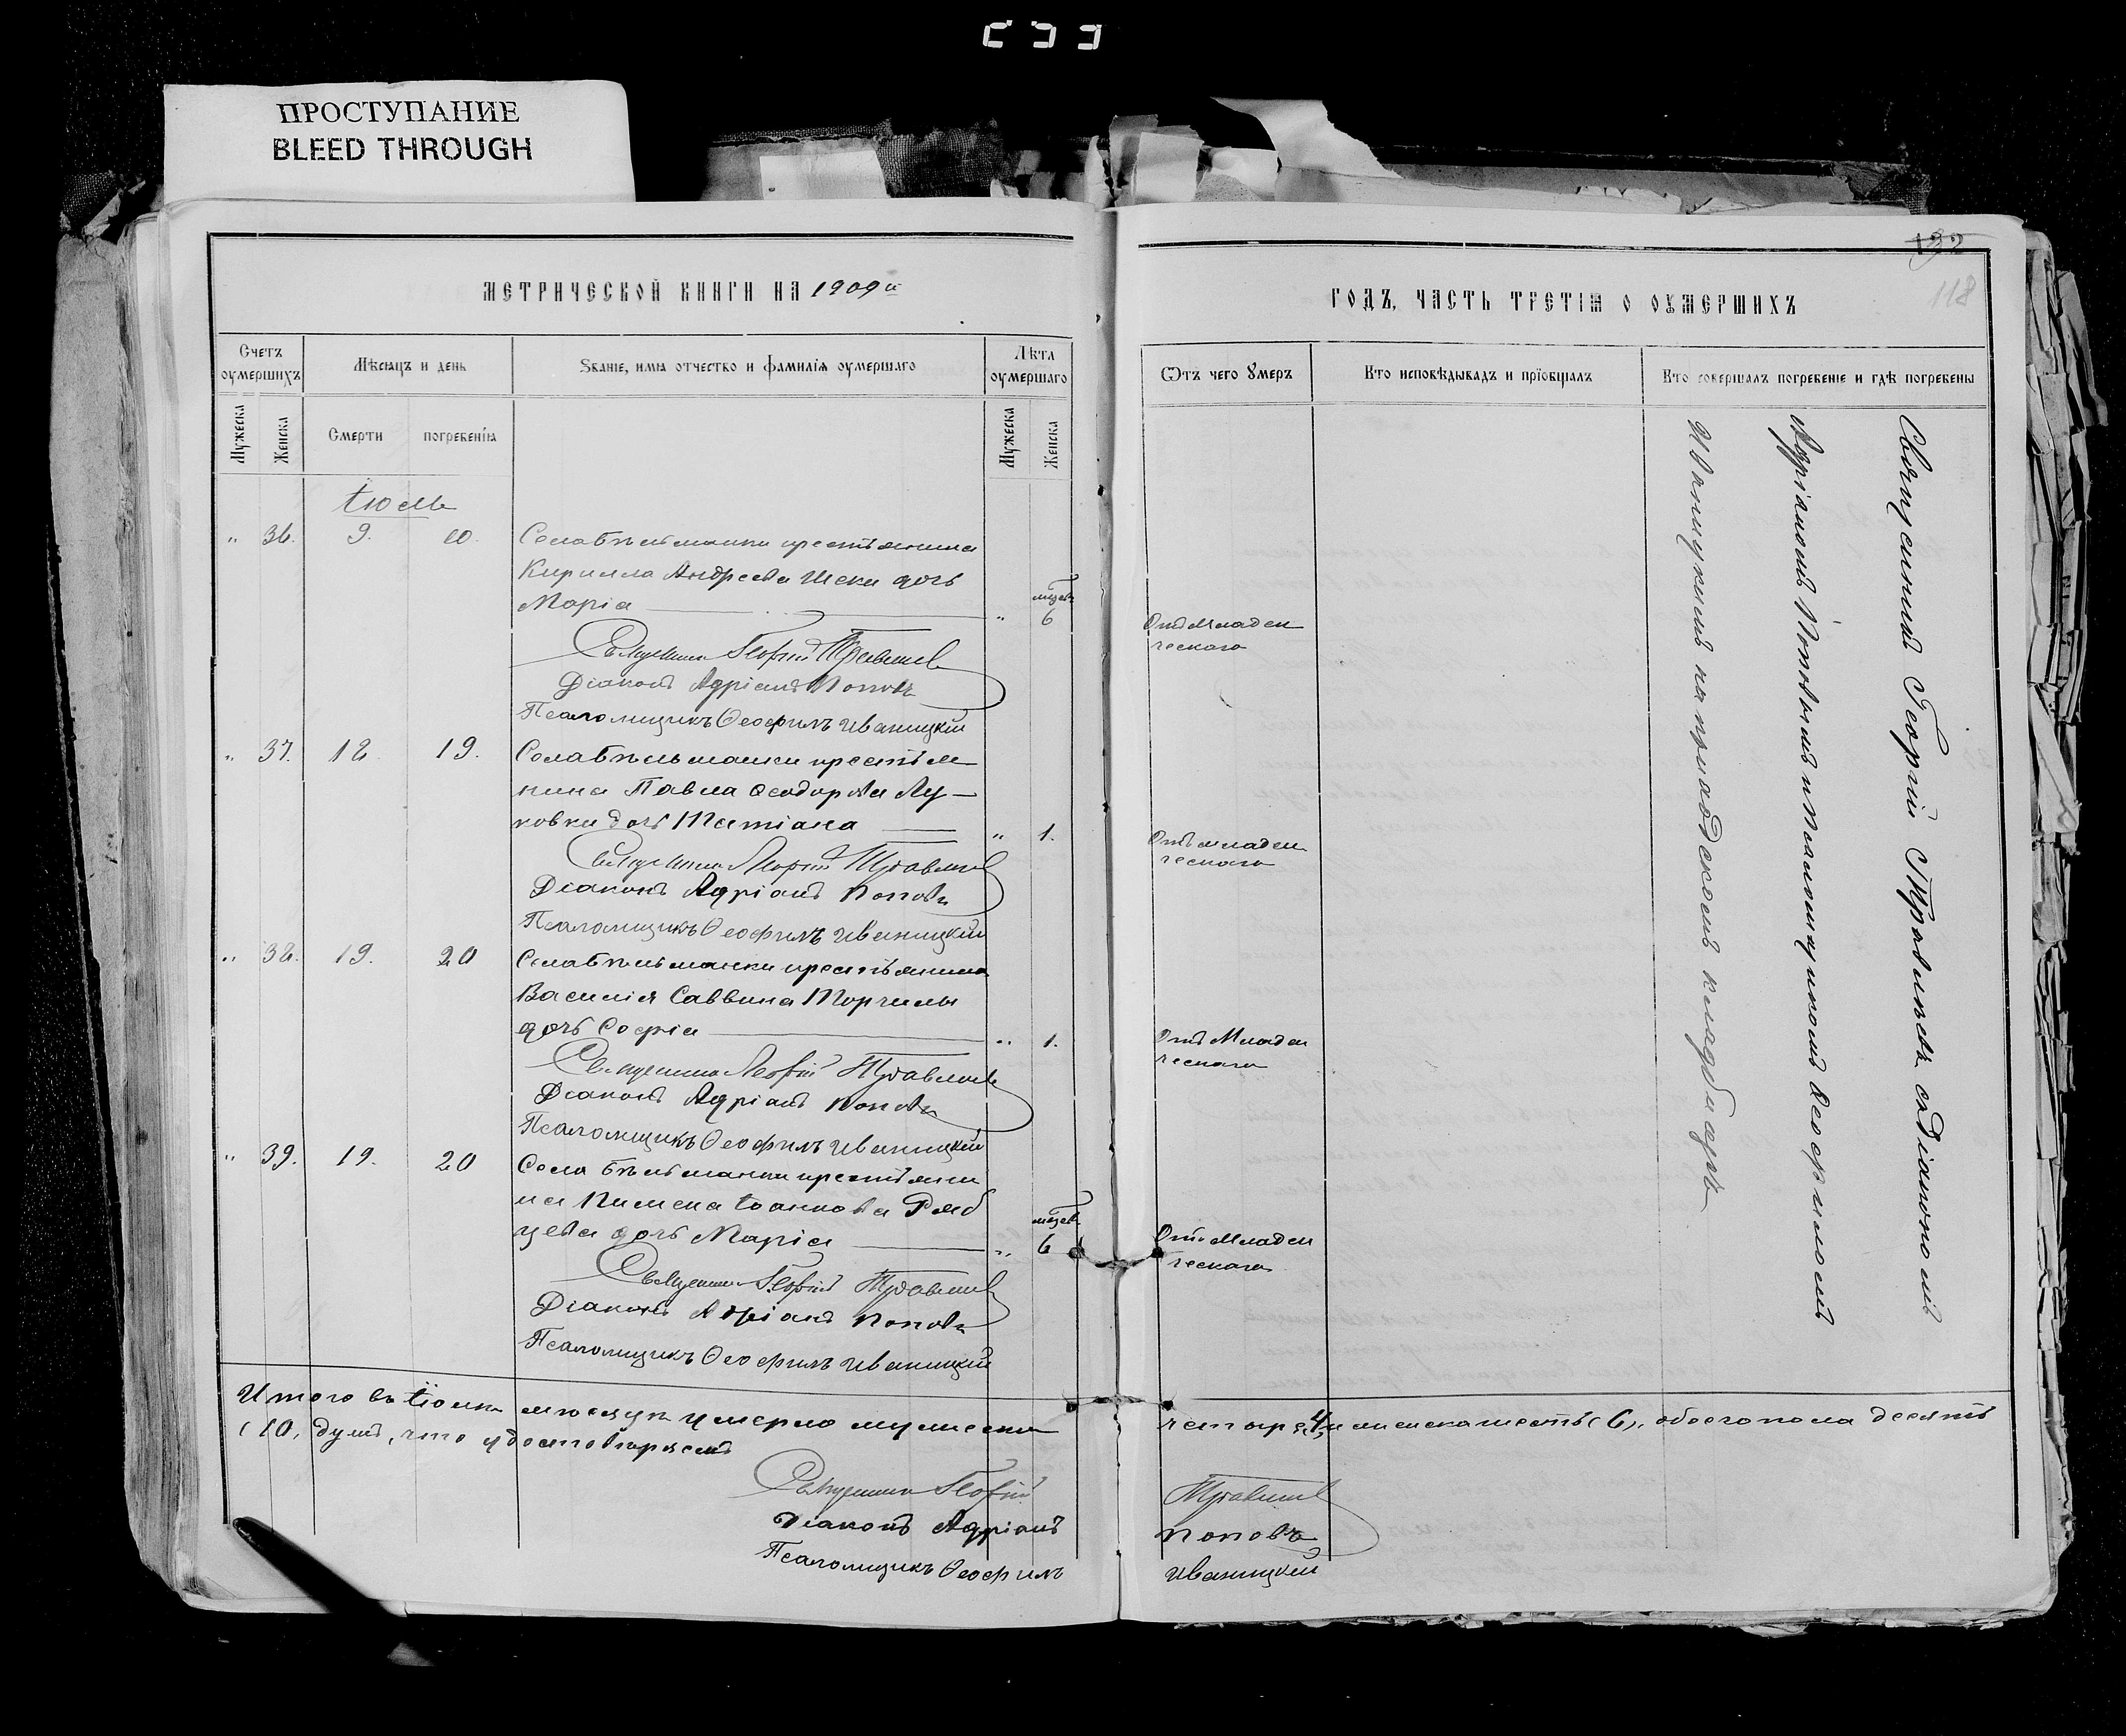 ПРОСТУПАНИЕ
BLEED THROUGH
132
118
МЕТРИЧЕСКОЙ КНИГИ НА 1909й
ГОДЪ, ЧАСТЬ ТРЕТІЯ О ОУМЕРШИХЪ
Счетъ оумершихъ
Мѣсяцъ и день
Званіе, имя отчество и фамилія оумершаго
Лѣта оумершаго
Мужеска
Женска
Смерти
погребенія
Мужеска
Женска
Ѿтъ чего Умеръ
Кто исповѣдывалъ и пріобщалъ
Кто совершалъ погребеніе и гдѣ погребены
Іюль
" 36. 9. 10. Села Бѣльманки крестьянина
Кирилла Андреева Шеки дочь
Марія " мѣсяц 6
Отъ младен
ческаго
Священникъ Георгій Травлѣевъ
Діаконъ Адріанъ Поповъ
Псаломщикъ Ѳеофилъ Иваницкій
" 37. 18 19. Села Бѣльманки крестья
нина Павла Ѳеодорова Лу-
ковки дочь Татіана " 1.
Отъ младен
ческаго
Священникъ Георгій Травлѣевъ
Діаконъ Адріанъ Поповъ
Псаломщикъ Ѳеофилъ Иваницкій
" 38. 19. 20 Села Бѣльманки крестьянина
Василія Саввина Торчилы
дочь Софія " 1.
Отъ Младен
ческаго
Священникъ Георгій Травлѣевъ
Діаконъ Адріанъ Поповъ
Псаломщикъ Ѳеофилъ Иваницкій
" 39. 19. 20 Села Бѣльманки крестьяни
на Пимена Іоаннова Ряб
цева дочь Марія " мѣсяц 6
Отъ Младен
ческаго
Священникъ Георгій Травлѣевъ
Діаконъ Адріанъ Поповъ
Псаломщикъ Ѳеофилъ Иваницкій
Священникъ Георгій Травлѣевъ съ діакономъ
Адріаномъ Поповымъ и псаломщикомъ Ѳеофиломъ
Иваницкимъ на приходскомъ кладбищѣ
Итого въ Іюлѣ мѣсяцѣ умерло мужеска четыре (4) и женска шесть (6), обоего пола десять
(10) душъ, что удостовѣряемъ
Священникъ Георгій Травлѣевъ
Діаконъ Адріанъ Поповъ
Псаломщикъ Ѳеофилъ Иваницкій